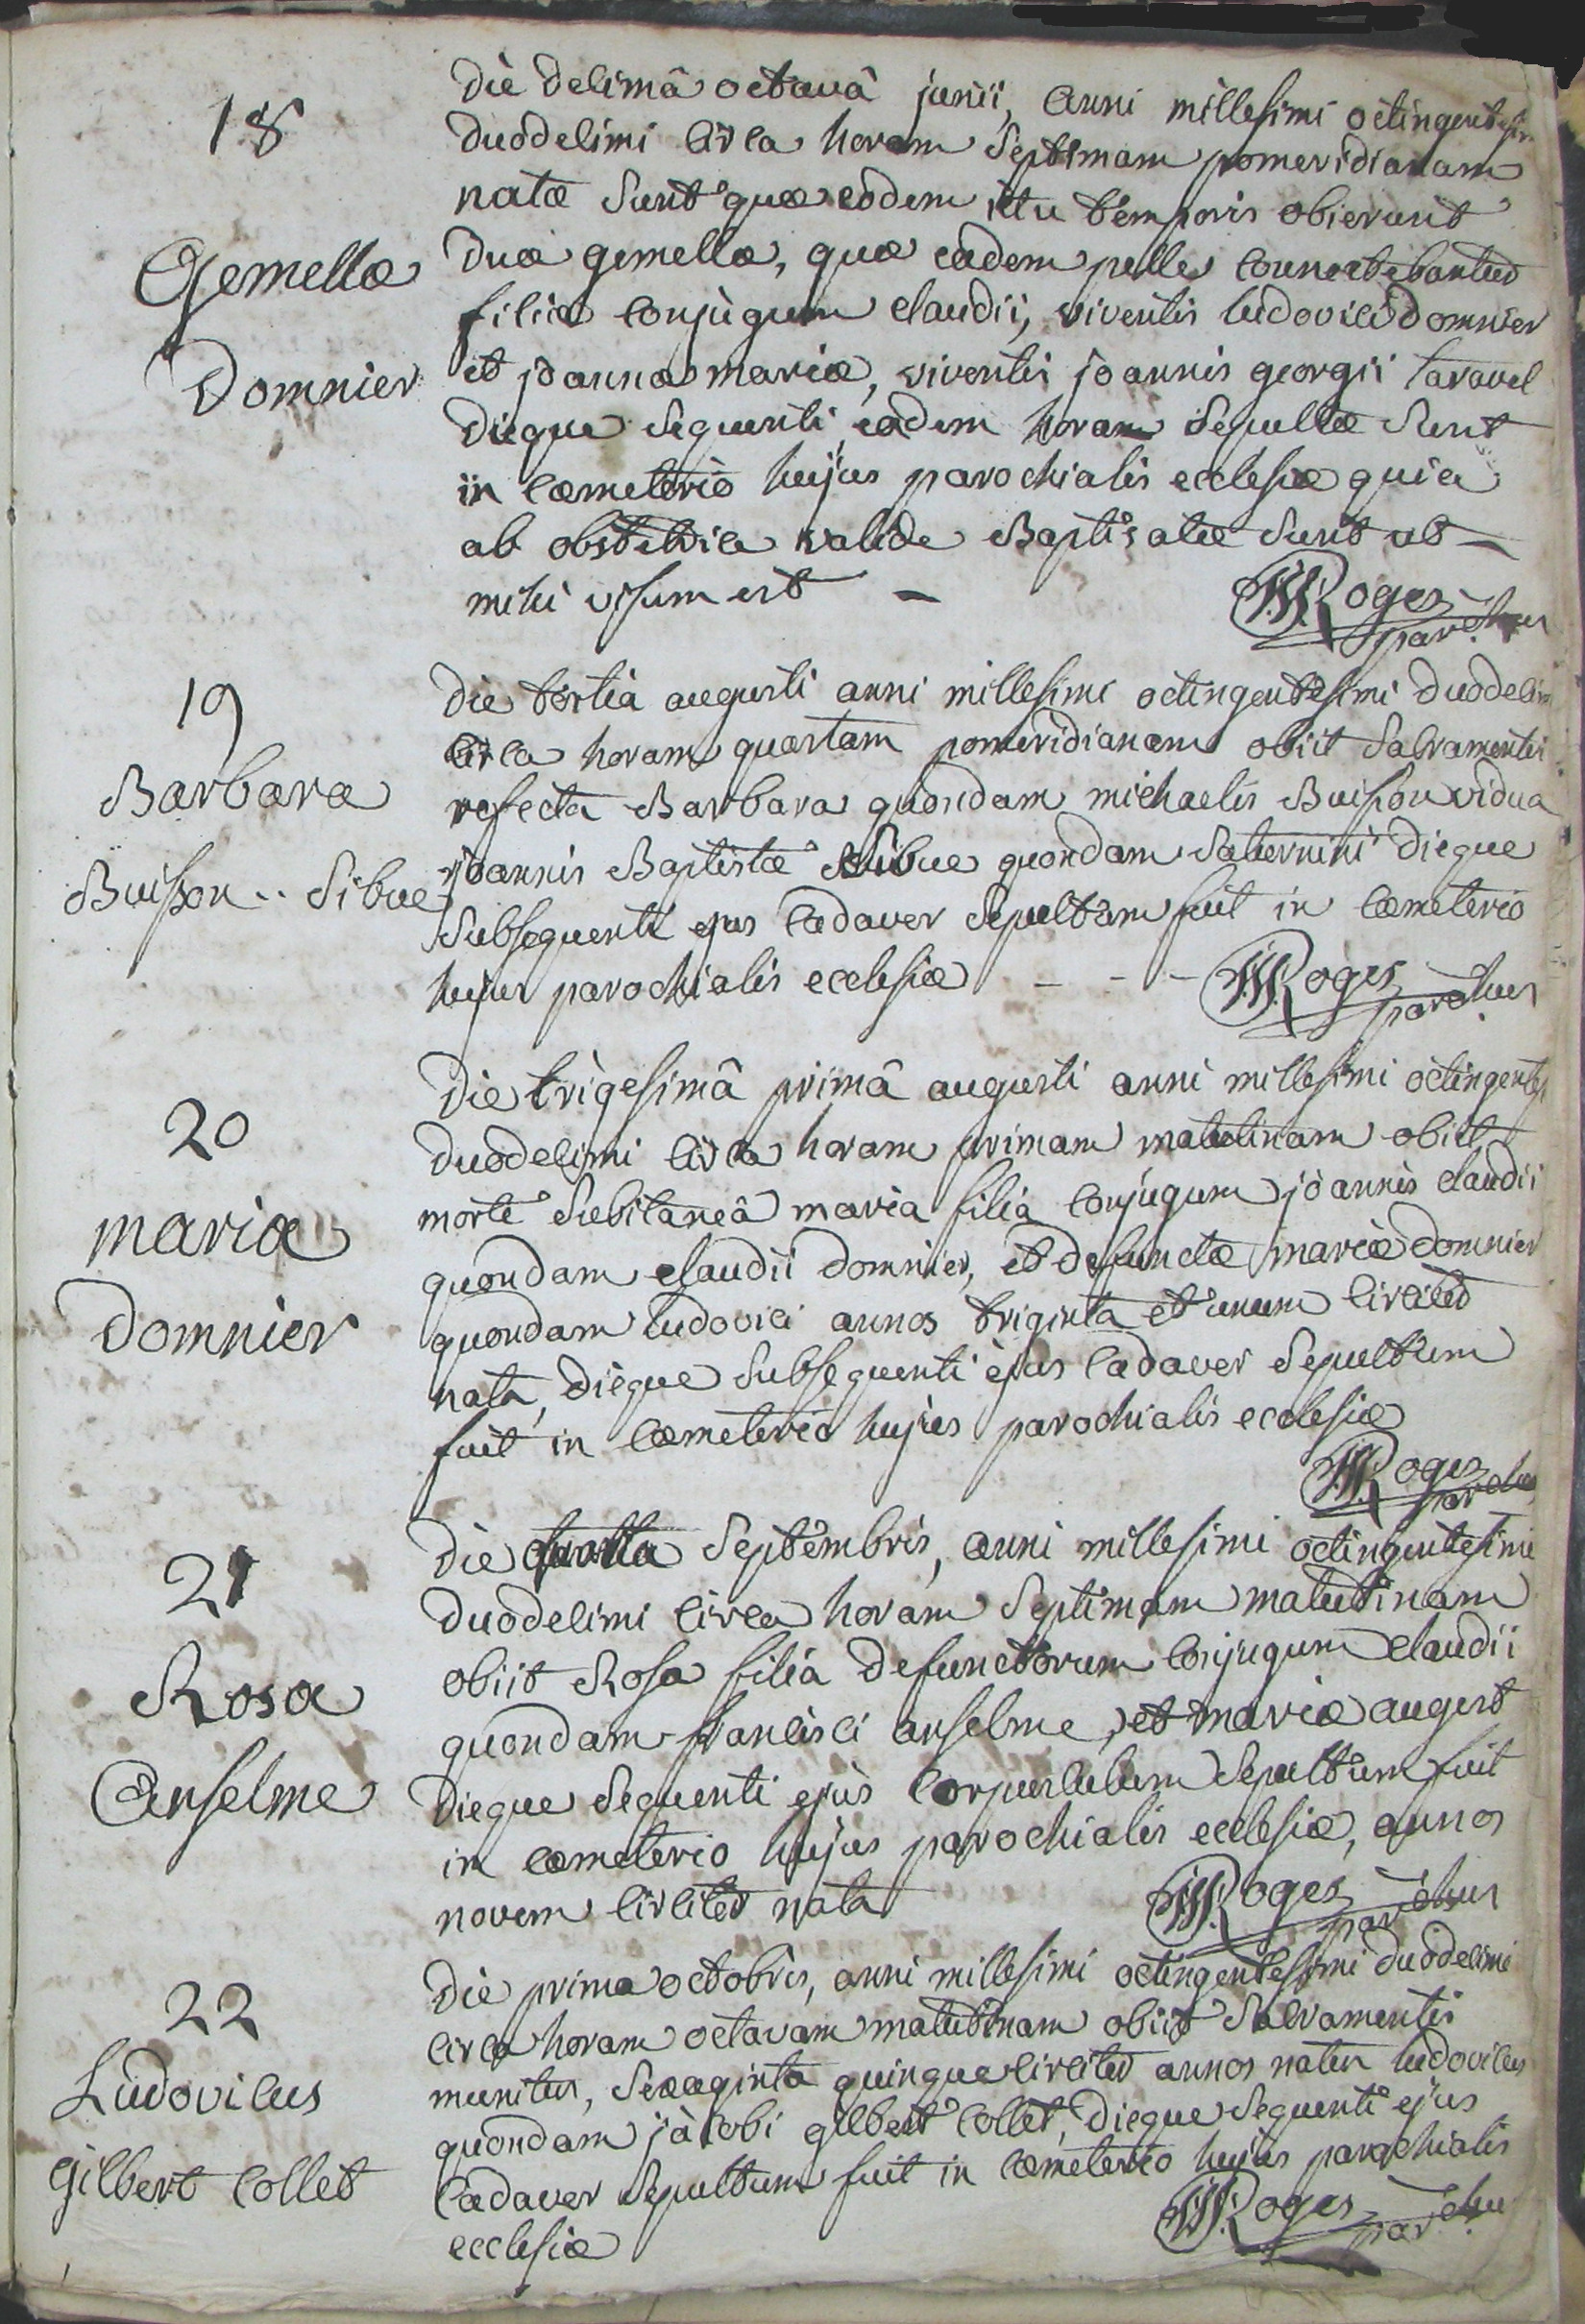 18
Gemellæ
Domnier
Die decimâ octavâ junii, anni millesimi octingentesim
duodecimi circa horam septimam pomeridianam
natæ sunt quæ eodem ictu temporis obierunt
duæ gemellæ, quæ eadem pelle connectebantur
filiæ conjugum claudii, viventis ludovici domnier
et joannæ mariæ, viventis joannis georgii taravel
dieque sequenti eadem horam sepultæ sunt
in cœmeterio hujus parochialis ecclesiæ quia
ab obstetrice valide Baptisatæ sunt ut —
mihi visum est —
Roges
parochus
19
Barbara
Buisson .. Sibue
Die tertia augusti anni millesimi octingentesimi duodecim
circa horam quartam pomeridianam obiit sacramentis
refecta Barbara quondam michaelis Buisson vidua
joannis Baptistæ Sibue quondam saturnini dieque
subsequenti ejus cadaver sepultum fuit in cœmeterio
hujus parochialis ecclesiæ - - - Roges
parochus
20
maria
Domnier
Die trigesimâ primâ augusti anni millesimi octingentesi
duodecimi circa horam primam matutinam obiit
morte subitaneâ maria filia conjugum joannis claudii
quondam claudii Domnier, et defunctæ mariæ domnier
quondam ludovici annos triginta et unum circiter
nata, dieque subsequenti ejus cadaver sepultum
fuit in cœmeterio hujus parochialis ecclesiæ
Roges
parochus
21
Rosa
Anselme
Die quarta septembris, anni millesimi octingentesimi
duodecimi circa horam septimam matutinam
obiit Rosa filia defunctorum conjugum claudii
quondam francisci anselme, et mariæ augert
dieque sequenti ejus corpusculum sepultum fuit
in cœmeterio hujus parochialis ecclesiæ, annos
novem circiter nata
Roges
parochus
22
Ludovicus
gilbert Collet
Die prima octobris, anni millesimi octingentesimi duodecimi
circa horam octavam matutinam obiit sacramentis
munitus, sexaginta quinque circiter annos natus ludovicus
quondam jacobi gilbert Collet, dieque sequenti ejus
cadaver sepultum fuit in cœmeterio hujus parochialis
ecclesiæ
Roges
parochus